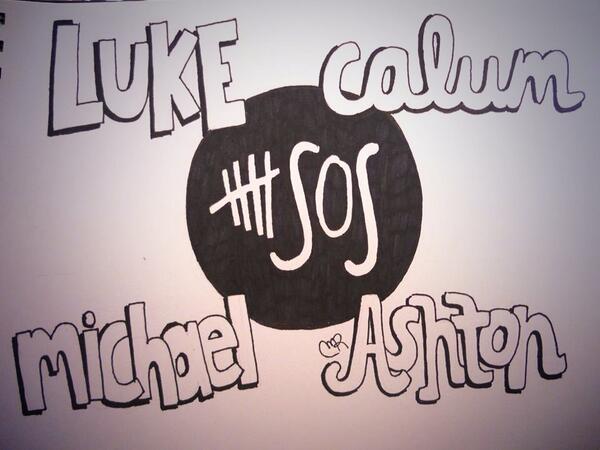 LUKE calum
SOS
michael Ashton